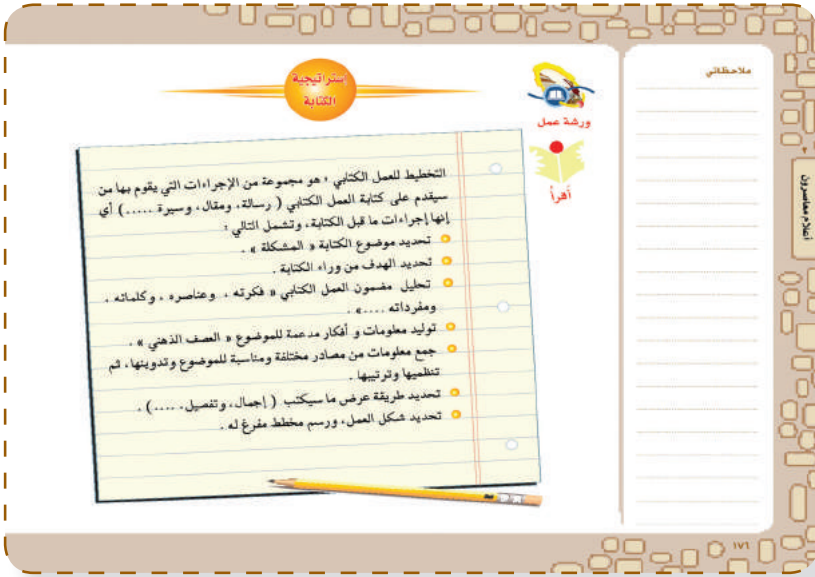 إستراتيجية
الكتابة
ورشة عمل
أقرأ
التخطيط للعمل الكتابي : هو مجموعة من الإجراءات التي يقوم بها من
سيقدم على كتابة العمل الكتابي ( رسالة، ومقال، وسيرة .....) أي
إنها إجراءات ما قبل الكتابة، وتشمل التالي :
تحديد موضوع الكتابة « المشكلة » .
تحديد الهدف من وراء الكتابة .
تحليل مضمون العمل الكتابي « فكرته ، وعناصره ، وكلماته ،
ومفرداته ....» .
توليد معلومات و أفكار مدعمة للموضوع « العصف الذهني » .
جمع معلومات من مصادر مختلفة ومناسبة للموضوع وتدوينها، ثم
تنظميها وترتيبها .
تحديد طريقة عرض ما سيكتب ( إجمال، وتفصيل، ....) .
تحديد شكل العمل، ورسم مخطط مفرغ له .
ملاحظاتي
٢
أعلام معاصرون
١٧٦